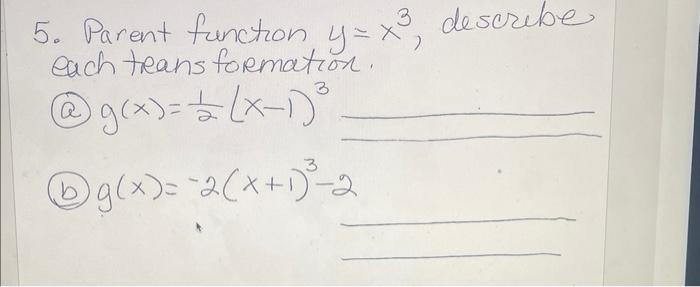 5. Parent function y = x³, describe
each transformation.
ⓐ g(x) = ½ (x-1)³
ⓑ g(x) = ⁻2(x+1)³-2